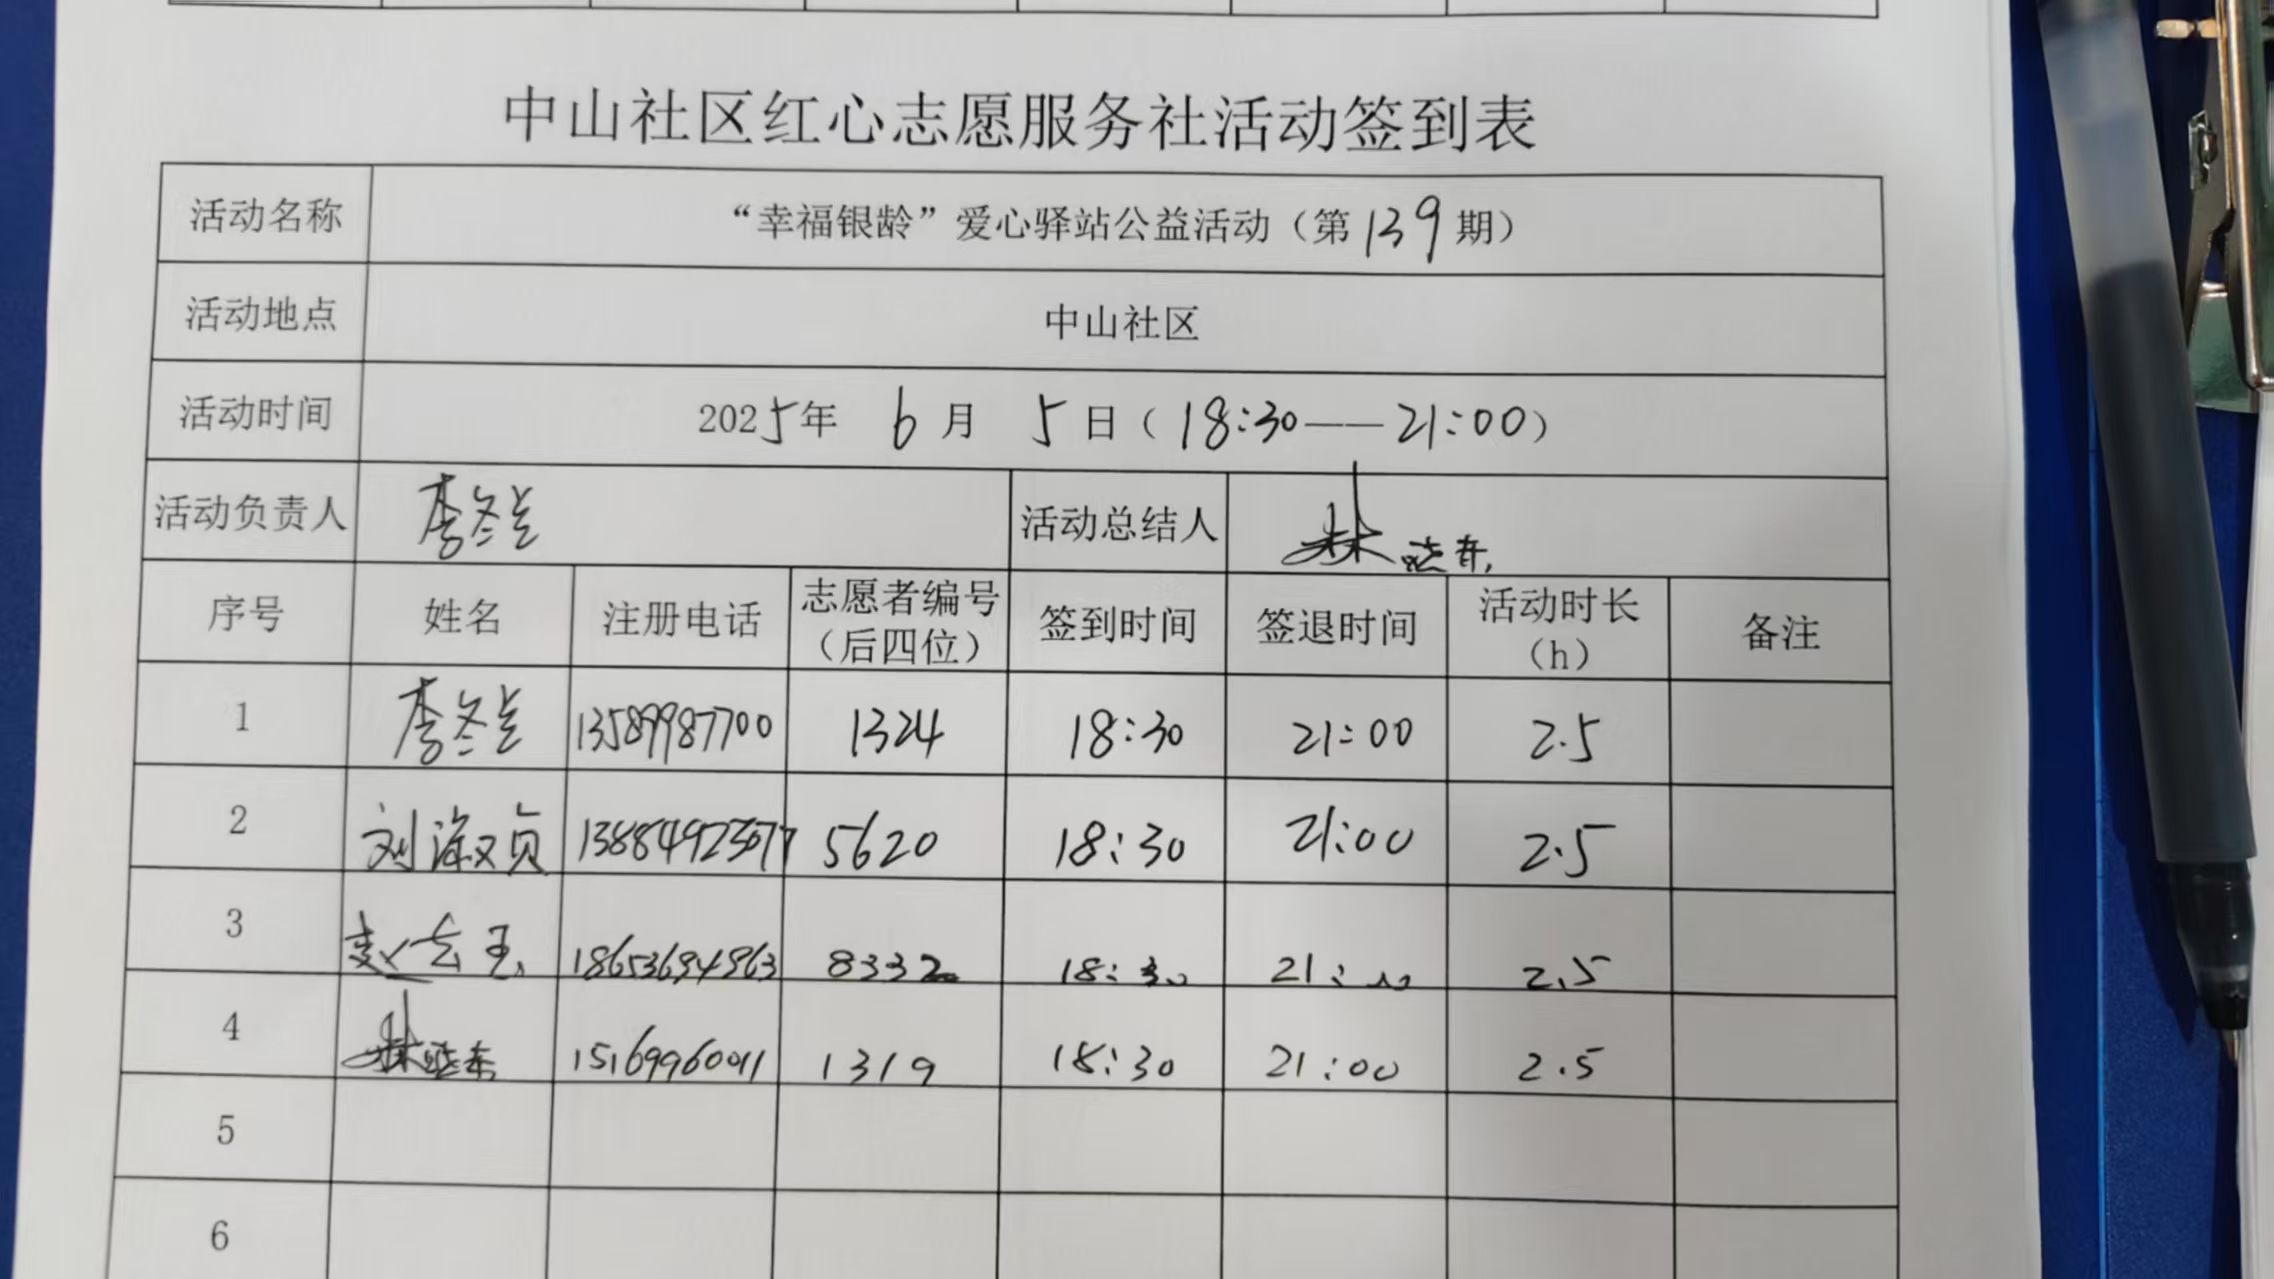 中山社区红心志愿服务社活动签到表
活动名称 “幸福银龄”爱心驿站公益活动（第139期）
活动地点 中山社区
活动时间 2025年 6月 5日（18:30——21:00）
活动负责人 李冬兰 活动总结人 林晓东
序号 姓名 注册电话 志愿者编号（后四位） 签到时间 签退时间 活动时长（h） 备注
1 李冬兰 13589987700 1324 18:30 21:00 2.5
2 刘淑贞 5620 18:30 21:00 2.5
3 赵云玉 18653694963 8332 18:30 21:00 2.5
4 林晓东 15169960011 1319 18:30 21:00 2.5
5
6